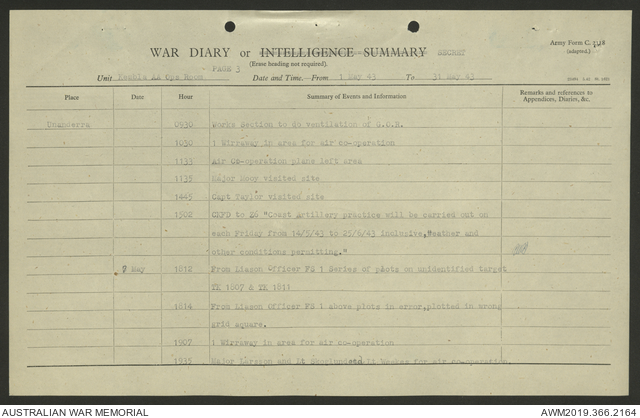 WAR DIARY or INTELLIGENCE SUMMARY SECRET
Army Form C. 2118
(adapted.)
(Erase heading not required).
PAGE 3
Unit Kembla AA Ops Room Date and Time—From 1 May 43 To 31 May 43
Place Date Hour Summary of Events and Information Remarks and references to Appendices, Diaries, &c.
Unanderra 0930 Works Section to do ventilation of G.O.R.
1030 1 Wirraway in area for air co-operation
1133 Air Co-operation plane left area
1135 Major Hooy visited site
1445 Capt Taylor visited site
1502 to "Coast Artillery practice will be carried out on
each Friday from 14/5/43 to 25/6/43 inclusive, Weather and
other conditions permitting."
9 May 1812 From Liason Officer FS 1 Series of plots on unidentified target
TK 1807 & TK 1811
1814 From Liason Officer FS 1 above plots in error,plotted in wrong
grid square.
1907 1 Wirraway in area for air co-operation
1935 Major and Lt for air co-operation.
AUSTRALIAN WAR MEMORIAL AWM2019.366.2164